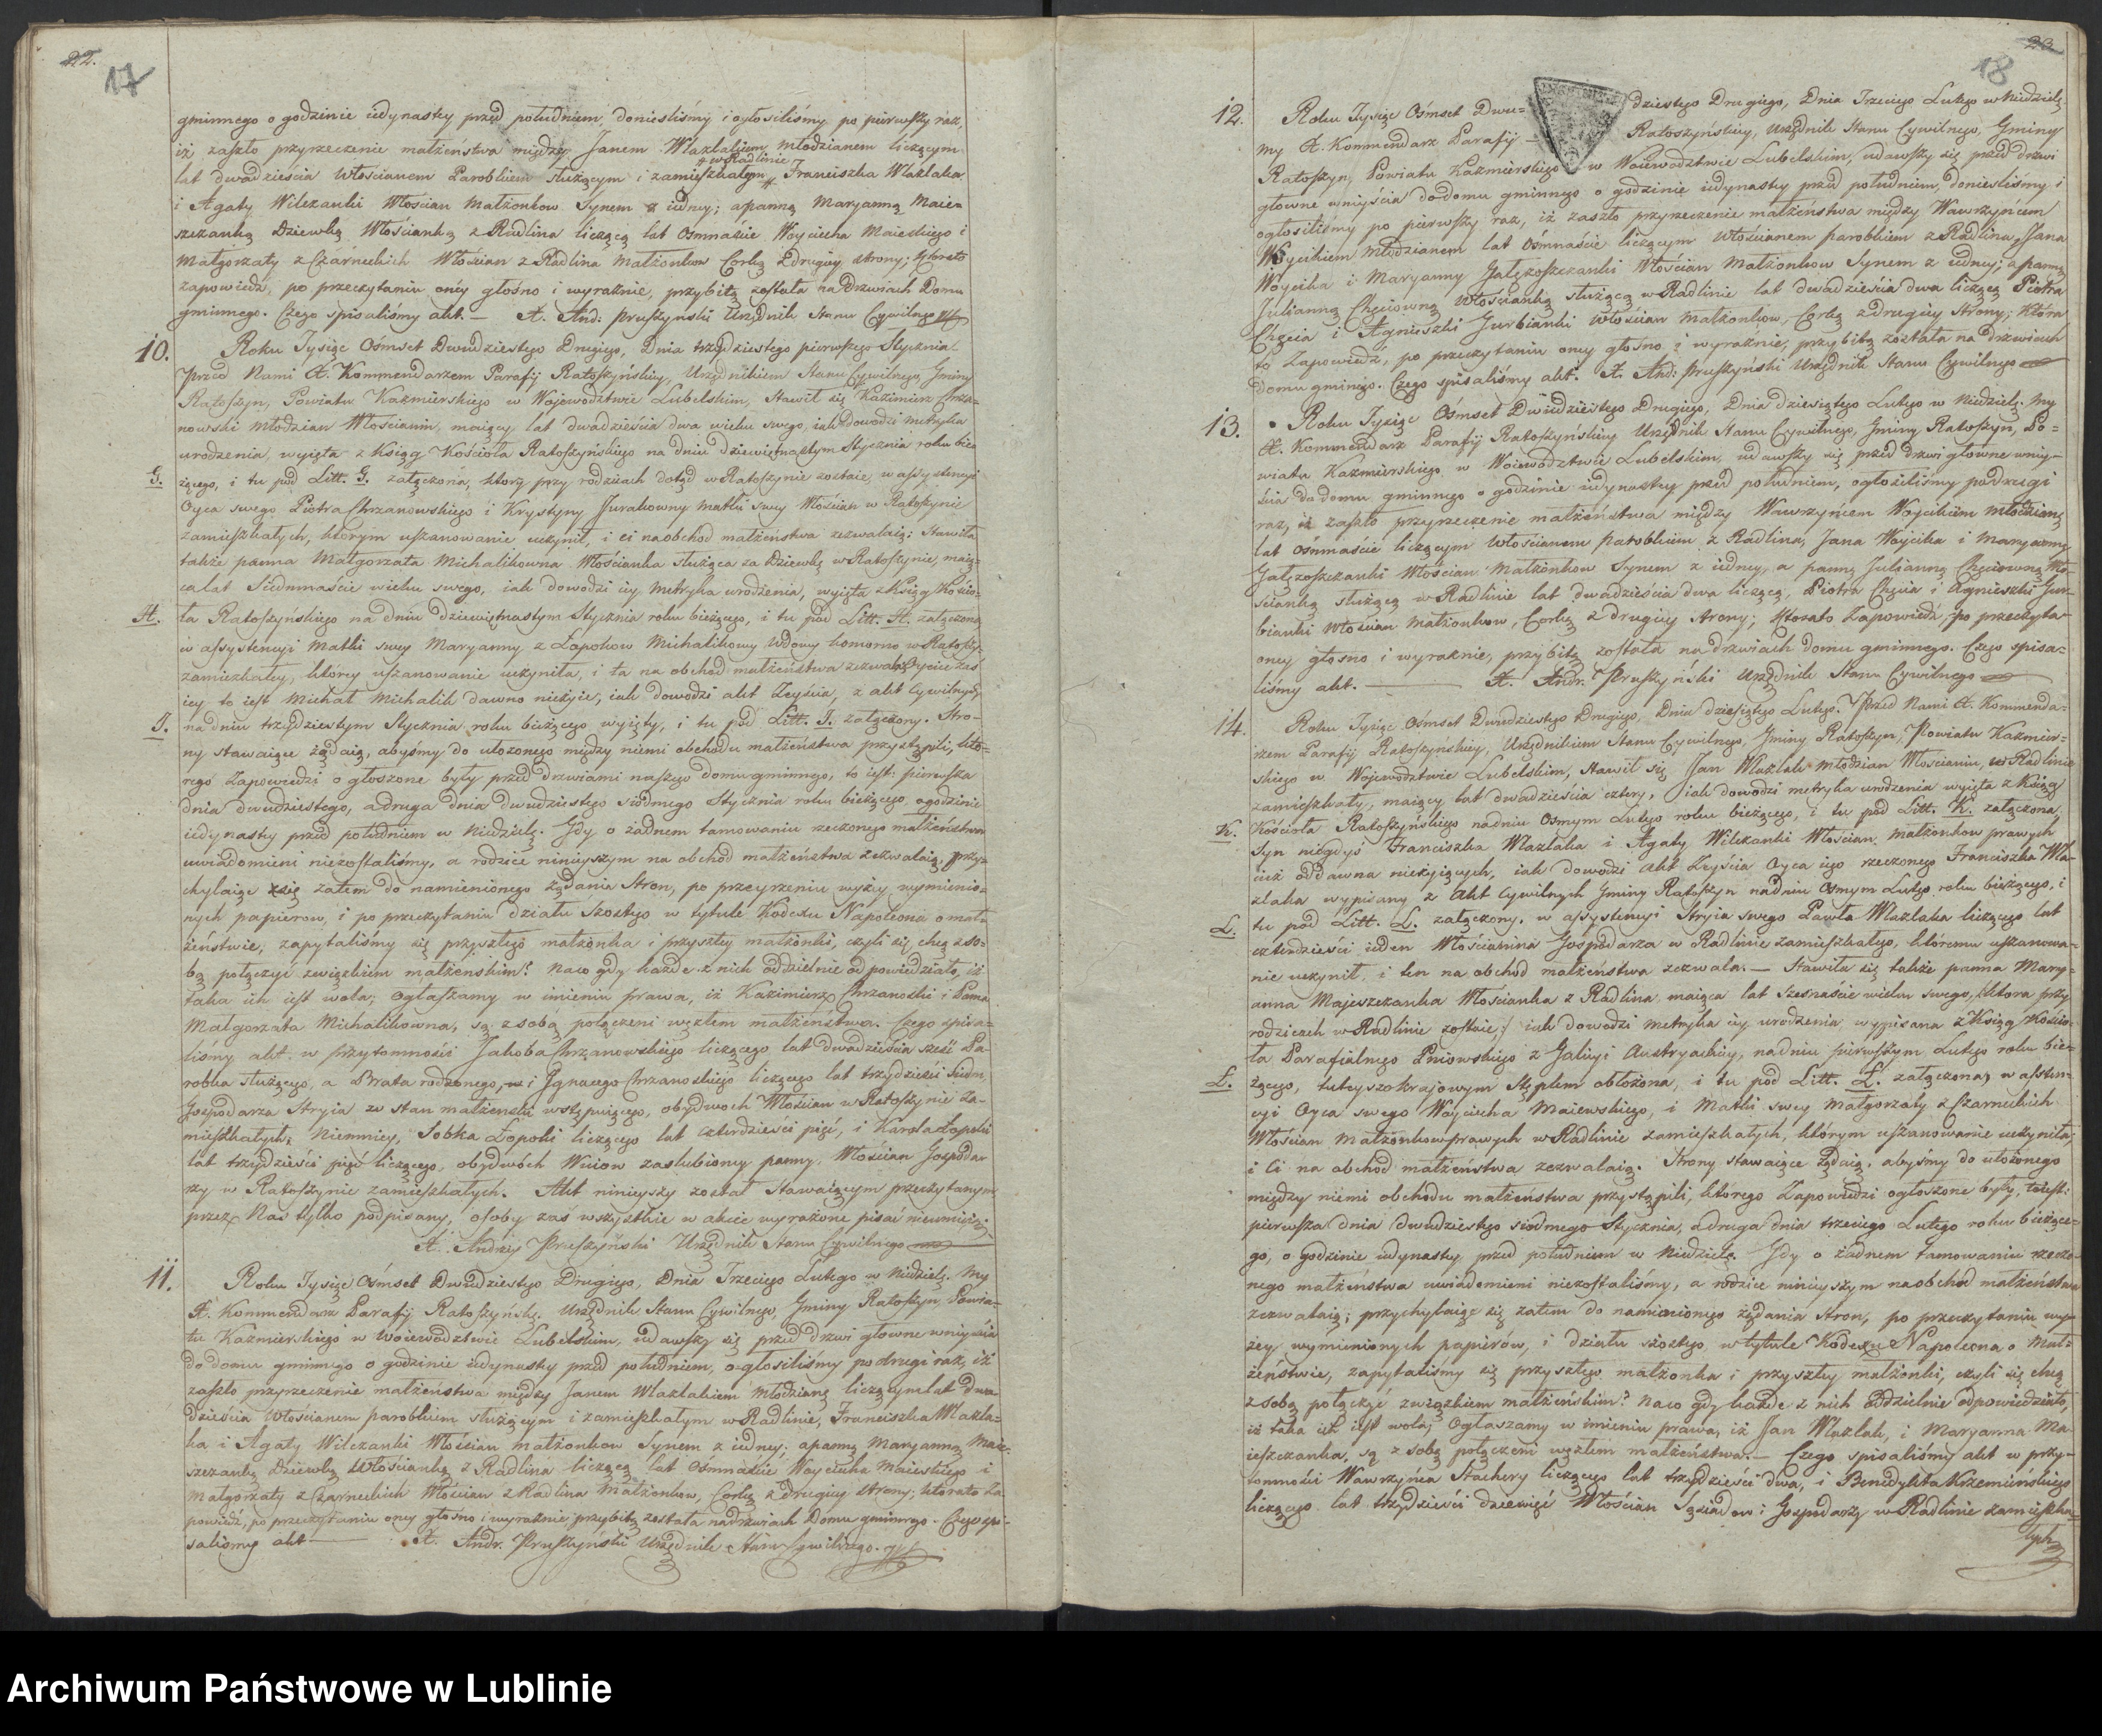 22.
17
gminnego o godzinie iedynastey przed południem, donieśliśmy i ogłosiliśmy po pierwszy raz,
iż zaszło przyrzeczenie małżeństwa między Janem Wlazlakiem młodzianem liczącym
# w Radlinie
lat dwadzieścia Włościanem Parobkiem służącym i zamieszkałym # Franciszka Wlazlaka
i Agaty Wilczanki Włościan Małżonkow Synem z iedney; a panną Maryanną Maie-
szczanką Dziewką Włościanką z Radlina liczącą lat Ośmnaście Woyciecha Maiewskiego i
Małgorzaty z Czarneckich Włościan z Radlina Małżonkow Corką z drugiey strony; Ktorato
zapowiedź, po przeczytaniu oney głośno i wyraźnie, przybitą została na Drzwiach Domu
gminnego. Czego spisaliśmy akt. — X. And: Pruszyński Urzędnik Stanu Cywilnego
10. Roku Tysiąc Ośmset Dwudziestego Drugiego, Dnia trzydziestego pierwszego Stycznia
Przed Nami X. Kommendarzem Parafij Ratoszyńskiey, Urzędnikiem Stanu Cywilnego, Gminy
Ratoszyn, Powiatu Kazmierskiego w Wojewodztwie Lubelskim, stawił się Kazimierz Chrza-
nowski Młodzian Włościanin, maiący lat dwadzieścia dwa wieku swego, iak dowodzi metryka
urodzenia, wyięta z Ksiąg Kościoła Ratoszyńskiego na dniu dziewiętnastym Stycznia roku bie-
G. żącego, i tu pod Litt. G. załączona, ktory przy rodzicach dotąd w Ratoszynie zostaie, w assystencyi
Oyca swego Piotra Chrzanowskiego i Krystyny Jurakowny matki swey Włościan w Ratoszynie
zamieszkałych, ktorym uszanowanie uczynił, i ci na obchod małżeństwa zezwalaią; Stawiła
także panna Małgorzata Michalikowna Włościanka służąca za Dziewkę w Ratoszynie, maią-
ca lat Siedmnaście wieku swego, iak dowodzi iey Metryka urodzenia, wyięta z Ksiąg Kościo-
H. ła Ratoszyńskiego na dniu dziewiętnastym Stycznia roku bieżącego, i tu pod Litt. H. załączona
w assystencyi matki swey Maryanny z Łopokow Michalikowey Wdowy komorne w Ratoszy-
zamieszkałey, ktorey uszanowanie uczyniła, i ta na obchod małżeństwa zezwala. Oyciec zaś
iey to iest Michał Michalik dawno nieżyie, iak dowodzi akt Zeyścia, z akt Cywilnych
J. na dniu trzydziestym Stycznia roku bieżącego wyięty, i tu pod Litt. J. załączony. Stro-
ny stawaiące żądaią, abyśmy do ułożonego między niemi obchodu małżeństwa przystąpili, kto-
rego Zapowiedzi ogłoszone były przed drzwiami naszego domu gminnego, to iest: pierwsza
dnia dwudziestego, a druga dnia dwudziestego siodmego Stycznia roku bieżącego, o godzinie
iedynastey przed południem w Niedzielę. Gdy o żadnem tamowaniu rzeczonego małżeństwa
uwiadomieni niezostaliśmy, a rodzice ninieyszym na obchod małżeństwa zezwalaią, przy-
chylaiąc się zatem do namienionego żądania Stron, po przeyrzeniu wyżey wymienio-
nych papierow, i po przeczytaniu działu szostego w tytule Kodexu Napoleona o mał-
żeństwie, zapytaliśmy się przyszłego małżonka i przyszłey małżonki, czyli się chcą z so-
bą połączyć związkiem małżeńskim? Na co gdy każde z nich oddzielnie odpowiedziało, iż
taka ich iest wola; Ogłaszamy w imieniu prawa, iż Kazimierz Chrzanoski i Panna
Małgorzata Michalikowna, są z sobą połączeni węzłem małżeństwa. Czego spisa-
liśmy akt w przytomności Jakoba Chrzanowskiego liczącego lat dwadzieścia sześć Pa-
robka służącego, a Brata rodzonego, i Jgnacego Chrzanoskiego liczącego lat trzydzieści siedm,
Gospodarza Stryia w stan małżeński wstępuiącego, obydwoch Włościan w Ratoszynie Za-
mieszkałych; Niemniey, Sobka Łopoki liczącego lat czterdzieści pięć, i Karola Łopoki
lat trzydzieści pięć liczącego, obydwóch Wuiow zaslubioney panny, Włościan Gospodar-
zy w Ratoszynie zamieszkałych. Akt ninieyszy został Stawaiącym przeczytanym
przez Nas tylko podpisany, osoby zaś wszystkie w akcie wyrażone pisać nieumieią.
X. Andrzey Pruszyński Urzędnik Stanu Cywilnego
11. Roku Tysiąc Ośmset Dwudziestego Drugiego, Dnia Trzeciego Lutego w Niedzielę. My
X. Kommendarz Parafij Ratoszyńskiey Urzędnik Stanu Cywilnego, Gminy Ratoszyn Powia-
tu Kazmierskiego w Woiewodztwie Lubelskim, udawszy się przed drzwi głowne wniyścia
do domu gminnego o godzinie iedynastey przed południem, ogłosiliśmy po drugi raz, iż
zaszło przyrzeczenie małżeństwa między Janem Wlazlakiem Młodzianem liczącym lat dwa-
dzieścia Włościanem parobkiem służącym i zamieszkałym w Radlinie, Franciszka Wlazla-
ka i Agaty Wilczanki Włościan małżonkow Synem z iedney; a panną Maryanną Maie-
szczanką Dziewką Włościanką z Radlina liczącą lat Ośmnaście Woyciecha Maiewskiego i
Małgorzaty z Czarneckich Włościan z Radlina Małżonkow, Corką z drugiey strony; ktorato Za-
powiedź, po przeczytaniu oney głośno i wyraźnie przybitą została na drzwiach Domu gminnego. Czego spi-
saliśmy akt — X. Andr. Pruszyński Urzędnik Stanu Cywilnego.
23
18
12. Roku Tysiąc Ośmset Dwu- dziestego Drugiego, Dnia Trzeciego Lutego w Niedzielę
my X. Kommendarz Parafij Ratoszyńskiey, Urzędnik Stanu Cywilnego, Gminy
Ratoszyn, Powiatu Kazmierskiego w Woiewodztwie Lubelskim, udawszy się przed drzwi
głowne wniyścia do domu gminnego o godzinie iedynastey przed południem, donieśliśmy i
ogłosiliśmy po pierwszy raz, iż zaszło przyrzeczenie małżeństwa między Wawrzyńcem
Woycikiem Młodzianem lat Ośmnaście liczącym Włościanem parobkiem z Radlina, Jana
Woycika i Maryanny Gałęzoszczanki Włościan Małżonkow Synem z iedney; a panną
Julianną Chęciowną Włościanką służącą w Radlinie lat dwadzieścia dwa liczącą Piotra
Chęcia i Agnieszki Jurbianki Włościan Małżonkow, Corką z drugiey Strony; Ktora
to Zapowiedź, po przeczytaniu oney głośno i wyraźnie, przybitą została na drzwiach
domu gminnego. Czego spisaliśmy akt. X. And: Pruszyński Urzędnik Stanu Cywilnego
13. Roku Tysiąc Ośmset Dwudziestego Drugiego, Dnia dziesiątego Lutego w Niedzielę. My
X. Kommendarz Parafij Ratoszyńskiey Urzędnik Stanu Cywilnego, Gminy Ratoszyn, Po-
wiatu Kazmierskiego w Woiewodztwie Lubelskim, udawszy się przed drzwi głowne wniy-
ścia do domu gminnego o godzinie iedynastey przed południem, ogłosiliśmy po drugi
raz, iż zaszło przyrzeczenie małżeństwa między Wawrzyńcem Woycikiem Młodzianem
lat Ośmnaście liczącym Włościanem Parobkiem z Radlina, Jana Woycika i Maryanny
Gałęzoszczanki Włościan Małżonkow Synem z iedney, a panną Julianną Chęciowną Wło-
ścianką służącą w Radlinie lat dwadzieścia dwa liczącą, Piotra Chęcia i Agnieszki Jur-
bianki Włościan Małżonkow, Corką z drugiey strony; Ktorato Zapowiedź, po przeczyta-
oney głośno i wyraźnie, przybitą została na drzwiach domu gminnego. Czego spisa-
liśmy akt. — X. Andr. Pruszyński Urzędnik Stanu Cywilnego
14. Roku Tysiąc Ośmset Dwudziestego Drugiego, Dnia dziesiątego Lutego. Przed Nami X. Kommenda-
rzem Parafij Ratoszyńskiey, Urzędnikiem Stanu Cywilnego, Gminy Ratoszyn, Powiatu Kazmier-
skiego w Wojewodztwie Lubelskim, stawił się Jan Wlazlak młodzian Włościanin, w Radlinie
zamieszkały, maiący lat dwadzieścia cztery, iak dowodzi metryka urodzenia wyięta z Ksiąg
K. Kościoła Ratoszyńskiego na dniu Osmym Lutego roku bieżącego, i tu pod Litt. K. załączona,
Syn niegdyś Franciszka Wlazlaka i Agaty Wilczanki Włościan małżonkow prawych
iuż oddawna nieżyiących, iak dowodzi akt Zeyścia Oyca iego rzeczonego Franciszka Wla-
zlaka wypisany z Akt Cywilnych Gminy Ratoszyn na dniu Osmym Lutego roku bieżącego, i
L. tu pod Litt. L. załączony, w assystencyi Stryia swego Pawła Wlazlaka liczącego lat
czterdzieści ieden Włościanina Gospodarza w Radlinie zamieszkałego, ktoremu uszanowa-
nie uczynił, i ten na obchod małżeństwa zezwala. — Stawiła się także panna Mary-
anna Majeszczanka Włościanka z Radlina, maiąca lat Szesnaście wieku swego, ktora przy
rodzicach w Radlinie zostaie, iak dowodzi metryka iey urodzenia, wypisana z Ksiąg Kościo-
ła Parafialnego Pniowskiego z Galicyi Austryackiey, na dniu pierwszym Lutego roku bie-
Ł. żącego, tuteyszokrajowym Stęplem obłożona, i tu pod Litt. Ł. załączona, w assysten-
cyi Oyca swego Woyciecha Maiewskiego, i Matki swey Małgorzaty z Czarneckich
Włościan Małżonkow prawych w Radlinie zamieszkałych, którym uszanowanie uczyniła,
i Ci na obchod małżeństwa zezwalaią. Strony stawaiące żądaią, abyśmy do ułożonego
między niemi obchodu małżeństwa przystąpili, którego Zapowiedzi ogłoszone były, to iest:
pierwsza dnia dwudziestego siodmego Stycznia, a druga dnia trzeciego Lutego roku bieżące-
go, o godzinie iedynastey przed południem w Niedzielę. Gdy o żadnem tamowaniu rzeczo-
nego małżeństwa uwiadomieni niezostaliśmy, a rodzice ninieyszym na obchod małżeństwa
zezwalaią; przychylaiąc się zatem do namienionego żądania Stron, po przeczytaniu wy-
żey wymienionych papierów, i działu szostego w tytule Kodexu Napoleona o Mał-
żeństwie, zapytaliśmy się przyszłego małżonka i przyszłey małżonki, czyli się chcą
z sobą połączyć związkiem małżeńskim? Na co gdy każde z nich oddzielnie odpowiedziało,
iż taka ich iest wola; Ogłaszamy w imieniu prawa, iż Jan Wlazlak, i Maryanna Ma-
ieszczanka, są z sobą połączeni węzłem małżeństwa. — Czego spisaliśmy akt w przy-
tomności Wawrzyńca Stachery liczącego lat trzydzieści dwa, i Benedykta Krzemińskiego
liczącego lat trzydzieści dziewięć Włościan Sąsiadow i Gospodarzy w Radlinie zamieszka-
łych
Archiwum Państwowe w Lublinie